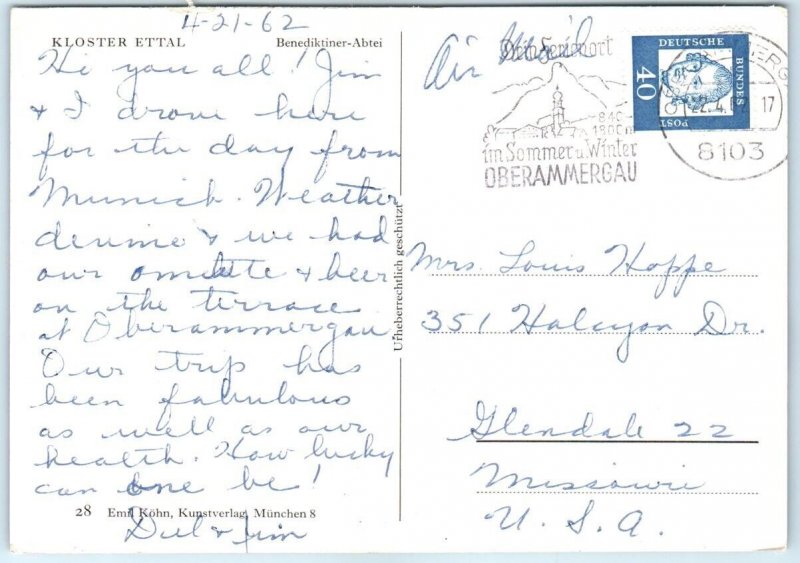 4-21-62
KLOSTER ETTAL
Benediktiner-Abtei
Hi you all! Jim
& I drove here
for the day from
Munich. Weather
devine & we had
our omelete & beer
on the terrace
at Oberammergau
Our trip has
been fabulous
as well as our
health. How lucky
can one be!
28 Emil Köhn, Kunstverlag, München 8
& Jim
Urheberrechtlich geschützt
Air Mail
Dein Ferienort
840
1800m
im Sommer u. Winter
OBERAMMERGAU
DEUTSCHE
BUNDES
POST
40
22.4.
17
8103
Mrs. Louis Hoppe
351 Halcyon Dr.
Glendale 22
Missouri
U. S. A.